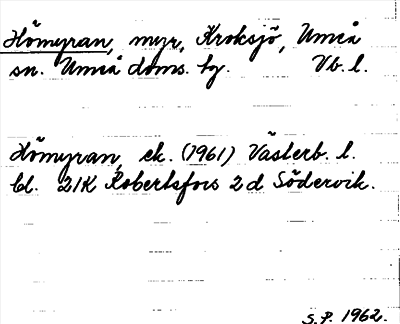 Hömyran, myr, Kroksjö, Umeå
sn. Umeå doms. hg. Vb. l.
Hömyran, ek. (1961) Västerb. l.
bl. 21K Robertsfors 2d Södervik.
S.P. 1962.